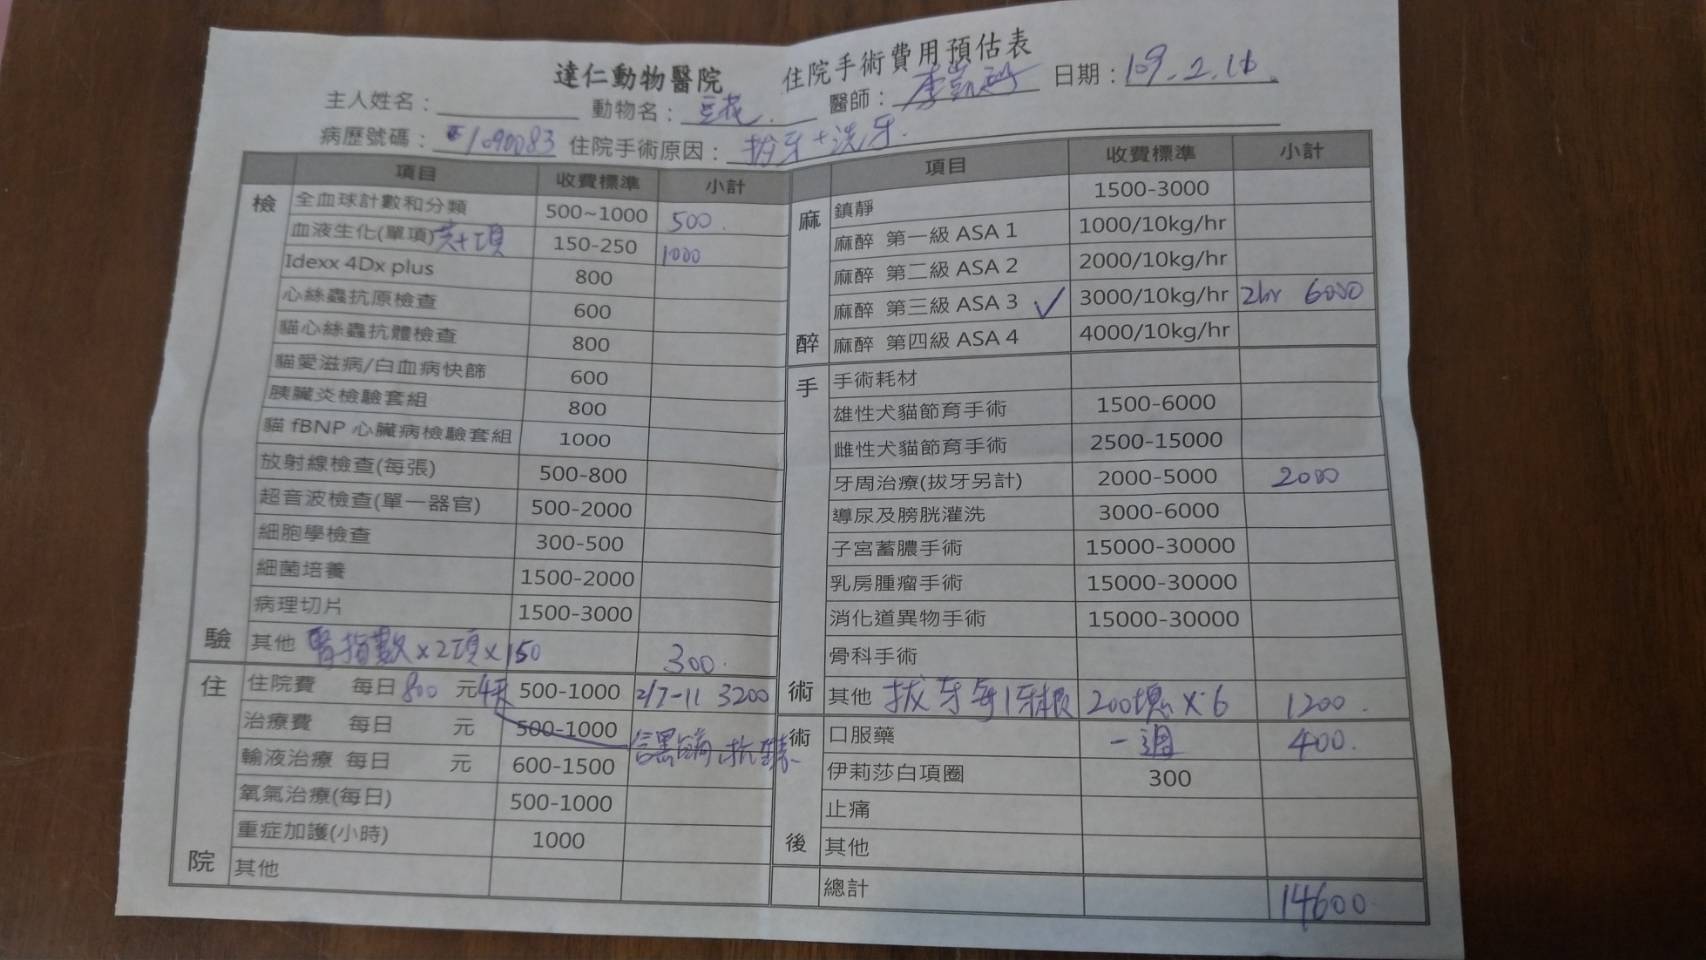 達仁動物醫院 住院手術費用預估表
主人姓名： 動物名：豆花. 醫師： 日期：109.2.16.
病歷號碼：1090083 住院手術原因：拔牙+洗牙.
項目 收費標準 小計
檢驗
全血球計數和分類 500~1000 500.
血液生化(單項) 共十項 150-250 1000
Idexx 4Dx plus 800
心絲蟲抗原檢查 600
貓心絲蟲抗體檢查 800
貓愛滋病/白血病快篩 600
胰臟炎檢驗套組 800
貓 fBNP 心臟病檢驗套組 1000
放射線檢查(每張) 500-800
超音波檢查(單一器官) 500-2000
細胞學檢查 300-500
細菌培養 1500-2000
病理切片 1500-3000
其他 腎指數×2項×150 300.
住院
住院費 每日800元 4天 500-1000 2/7-11 3200
治療費 每日 元 500-1000 含 止痛 抗生素
輸液治療 每日 元 600-1500
氧氣治療(每日) 500-1000
重症加護(小時) 1000
其他
項目 收費標準 小計
麻醉
鎮靜 1500-3000
麻醉 第一級 ASA 1 1000/10kg/hr
麻醉 第二級 ASA 2 2000/10kg/hr
麻醉 第三級 ASA 3 ✓ 3000/10kg/hr 2hr 6000
麻醉 第四級 ASA 4 4000/10kg/hr
手術
手術耗材
雄性犬貓節育手術 1500-6000
雌性犬貓節育手術 2500-15000
牙周治療(拔牙另計) 2000-5000 2000
導尿及膀胱灌洗 3000-6000
子宮蓄膿手術 15000-30000
乳房腫瘤手術 15000-30000
消化道異物手術 15000-30000
骨科手術
其他 拔牙每1牙根 200塊×6 1200.
術後
口服藥 一週 400.
伊莉莎白項圈 300
止痛
其他
總計 14600